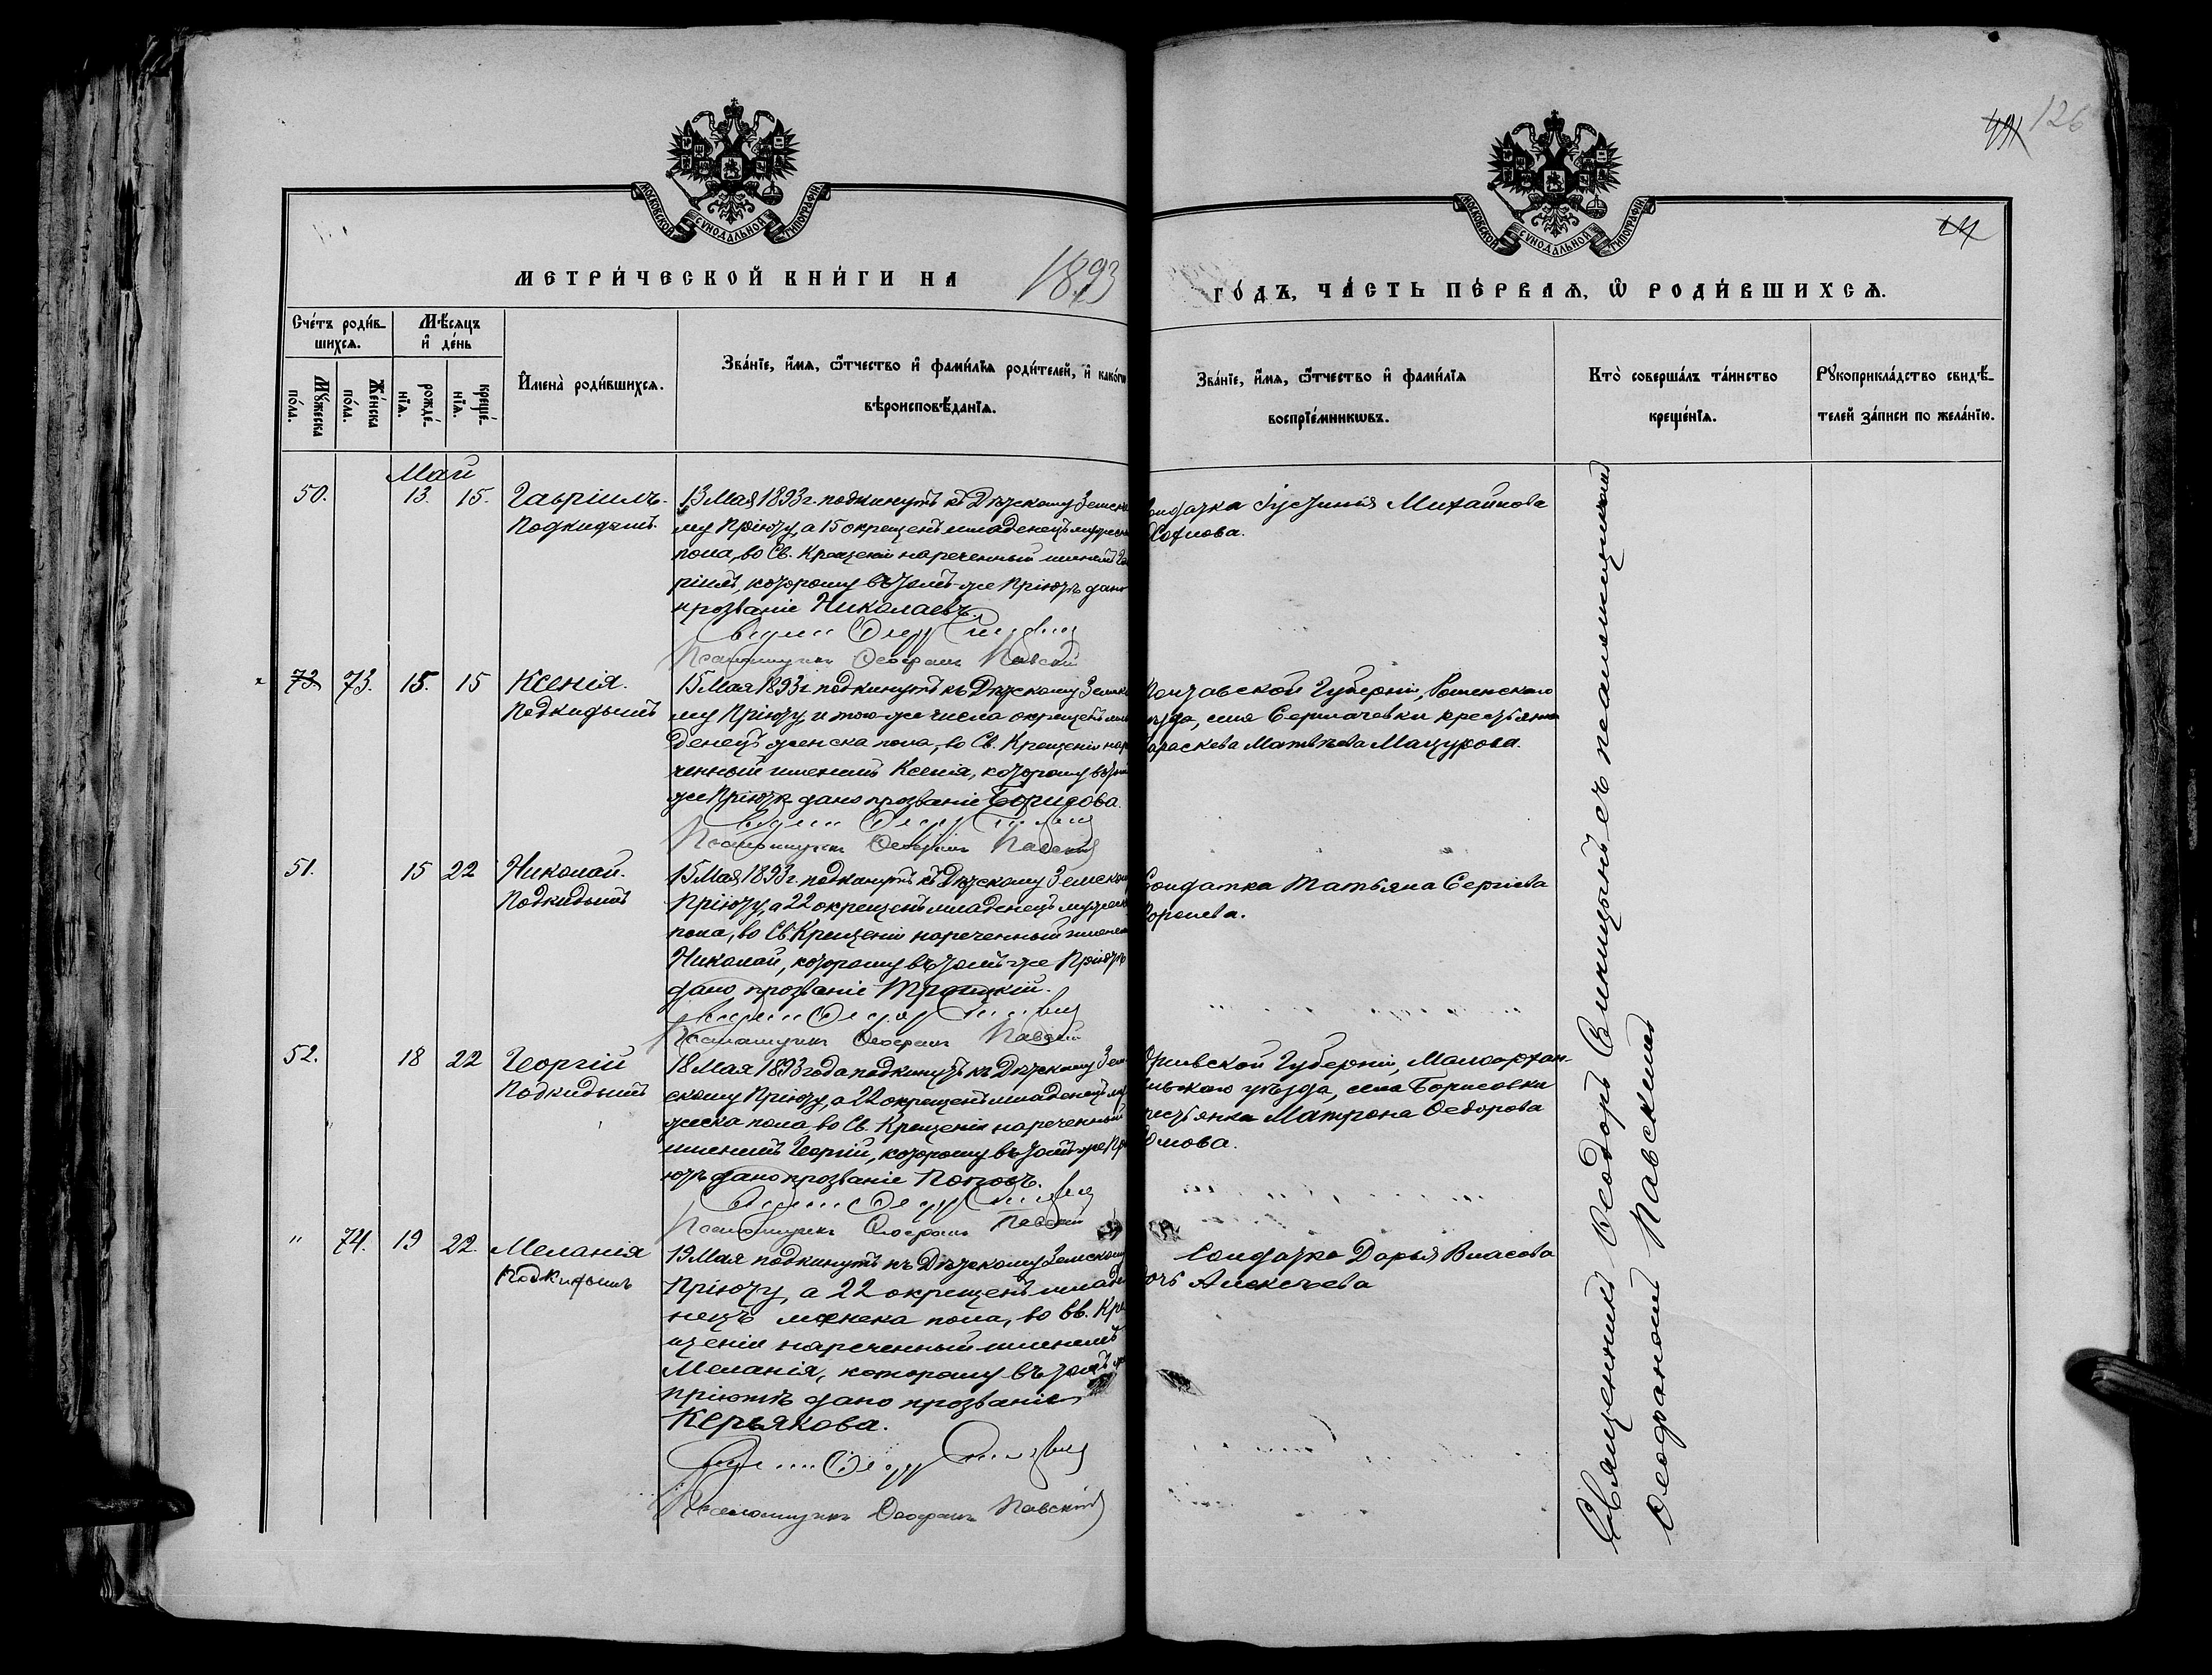 126
МОСКОВСКОЙ СУНОДАЛЬНОЙ ТИПОГРАФІИ
МОСКОВСКОЙ СУНОДАЛЬНОЙ ТИПОГРАФІИ
МЕТРИ́ЧЕСКОЙ КНИ́ГИ НА 1893
ГО́ДЪ, ЧА́СТЬ ПЕ́РВАѦ, Ѡ҆ РОДИ́ВШИХСѦ.
Сче́тъ роди́в-
шихсѧ.
Мѣ́сѧцъ
и҆ де́нь
Мꙋ́жеска
по́ла.
Же́нска
по́ла.
рожде́-
нїѧ.
креще́-
нїѧ.
И҆мена̀ роди́вшихсѧ.
Зва́нїе, и҆́мѧ, ѻ҆́тчество и҆ фами́лїѧ роди́телей, и҆ како́гѡ
вѣроисповѣ́данїѧ.
Зва́нїе, и҆́мѧ, ѻ҆́тчество и҆ фами́лїѧ
воспрїе́мникѡвъ.
Кто̀ соверша́лъ та́инство
креще́нїѧ.
Рꙋкоприкла́дство свидѣ́-
телей за́писи по жела́нїю.
Май
50. 13. 15. Гавріилъ.
Подкидышъ.
13 Мая 1893 г. подкинутъ къ Дѣтскому Земско
му Пріюту, а 15 окрещенъ младенецъ мужеска
пола, во Св. Крещеніи нареченный именемъ Гав
ріилъ, которому въ томъ-же Пріютѣ дано
прозваніе Николаевъ.
Псаломщикъ Ѳеофанъ Павскій
Солдатка Іустинія Михайлова
73 73. 15. 15 Ксенія.
Подкидышъ
15 Мая 1893 г. подкинутъ къ Дѣтскому Земско
му Пріюту, и того-же числа окрещенъ мла
денецъ женска пола, во Св. Крещеніи наре
ченный именемъ Ксенія, которому въ томъ
же Пріютѣ дано прозваніе
Псаломщикъ Ѳеофанъ Павскій
Полтавской Губерніи, Роменскаго
уѣзда, села крестьянка
Параскева Матвѣева Мацукова.
51. 15 22 Николай.
Подкидышъ
15 Мая 1893 г. подкинутъ къ Дѣтскому Земскому
Пріюту, а 22 окрещенъ младенецъ мужеска
пола, во Св. Крещеніи нареченный именемъ
Николай, которому въ томъ-же Пріютѣ
дано прозваніе Троицкій.
Псаломщикъ Ѳеофанъ Павскій
Солдатка Татьяна Сергіева
52. 18 22 Георгій
Подкидышъ
18 Мая 1893 года подкинутъ къ Дѣтскому Зем-
скому Пріюту, а 22 окрещенъ младенецъ му
жеска пола, во Св. Крещеніи нареченный
именемъ Георгій, которому въ томъ-же Прі
ютѣ дано прозваніе Поповъ.
Псаломщикъ Ѳеофанъ Павскій
Орловской Губерніи, Малоархан-
гельскаго уѣзда, села Борисовки
крестьянка Матрона Ѳедорова
" 74. 19 22. Меланія
Подкидышъ
19 Мая подкинутъ къ Дѣтскому Земскому
Пріюту, а 22 окрещенъ младе
нецъ женска пола, во Св. Кре
щеніи нареченный именемъ
Меланія, которому въ томъ же
пріютѣ дано прозваніе
Керьякова.
Псаломщикъ Ѳеофанъ Павскій
Солдатка Дарья Власова
дочь Алексѣева
Священникъ Ѳеодоръ съ псаломщикомъ
Ѳеофаномъ Павскимъ